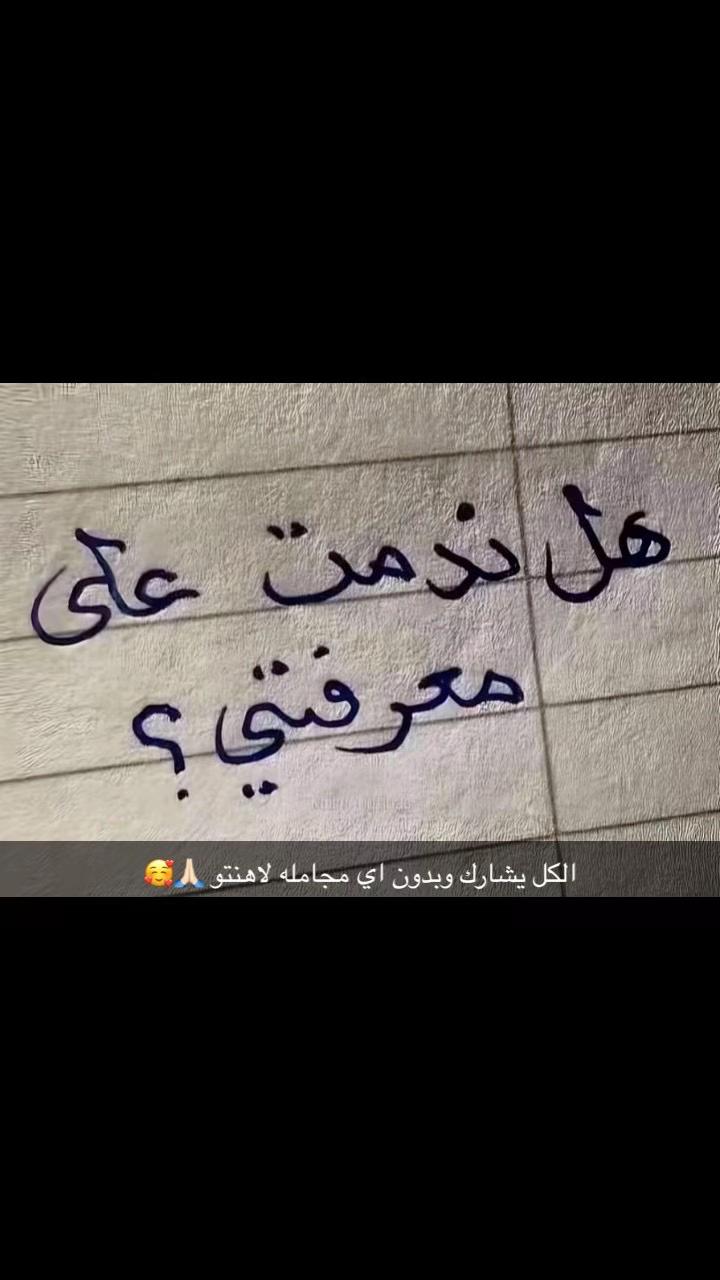 هل ندمت على
معرفتي ؟
الكل يشارك وبدون اي مجامله لاهنتو 🙏🏻🥰